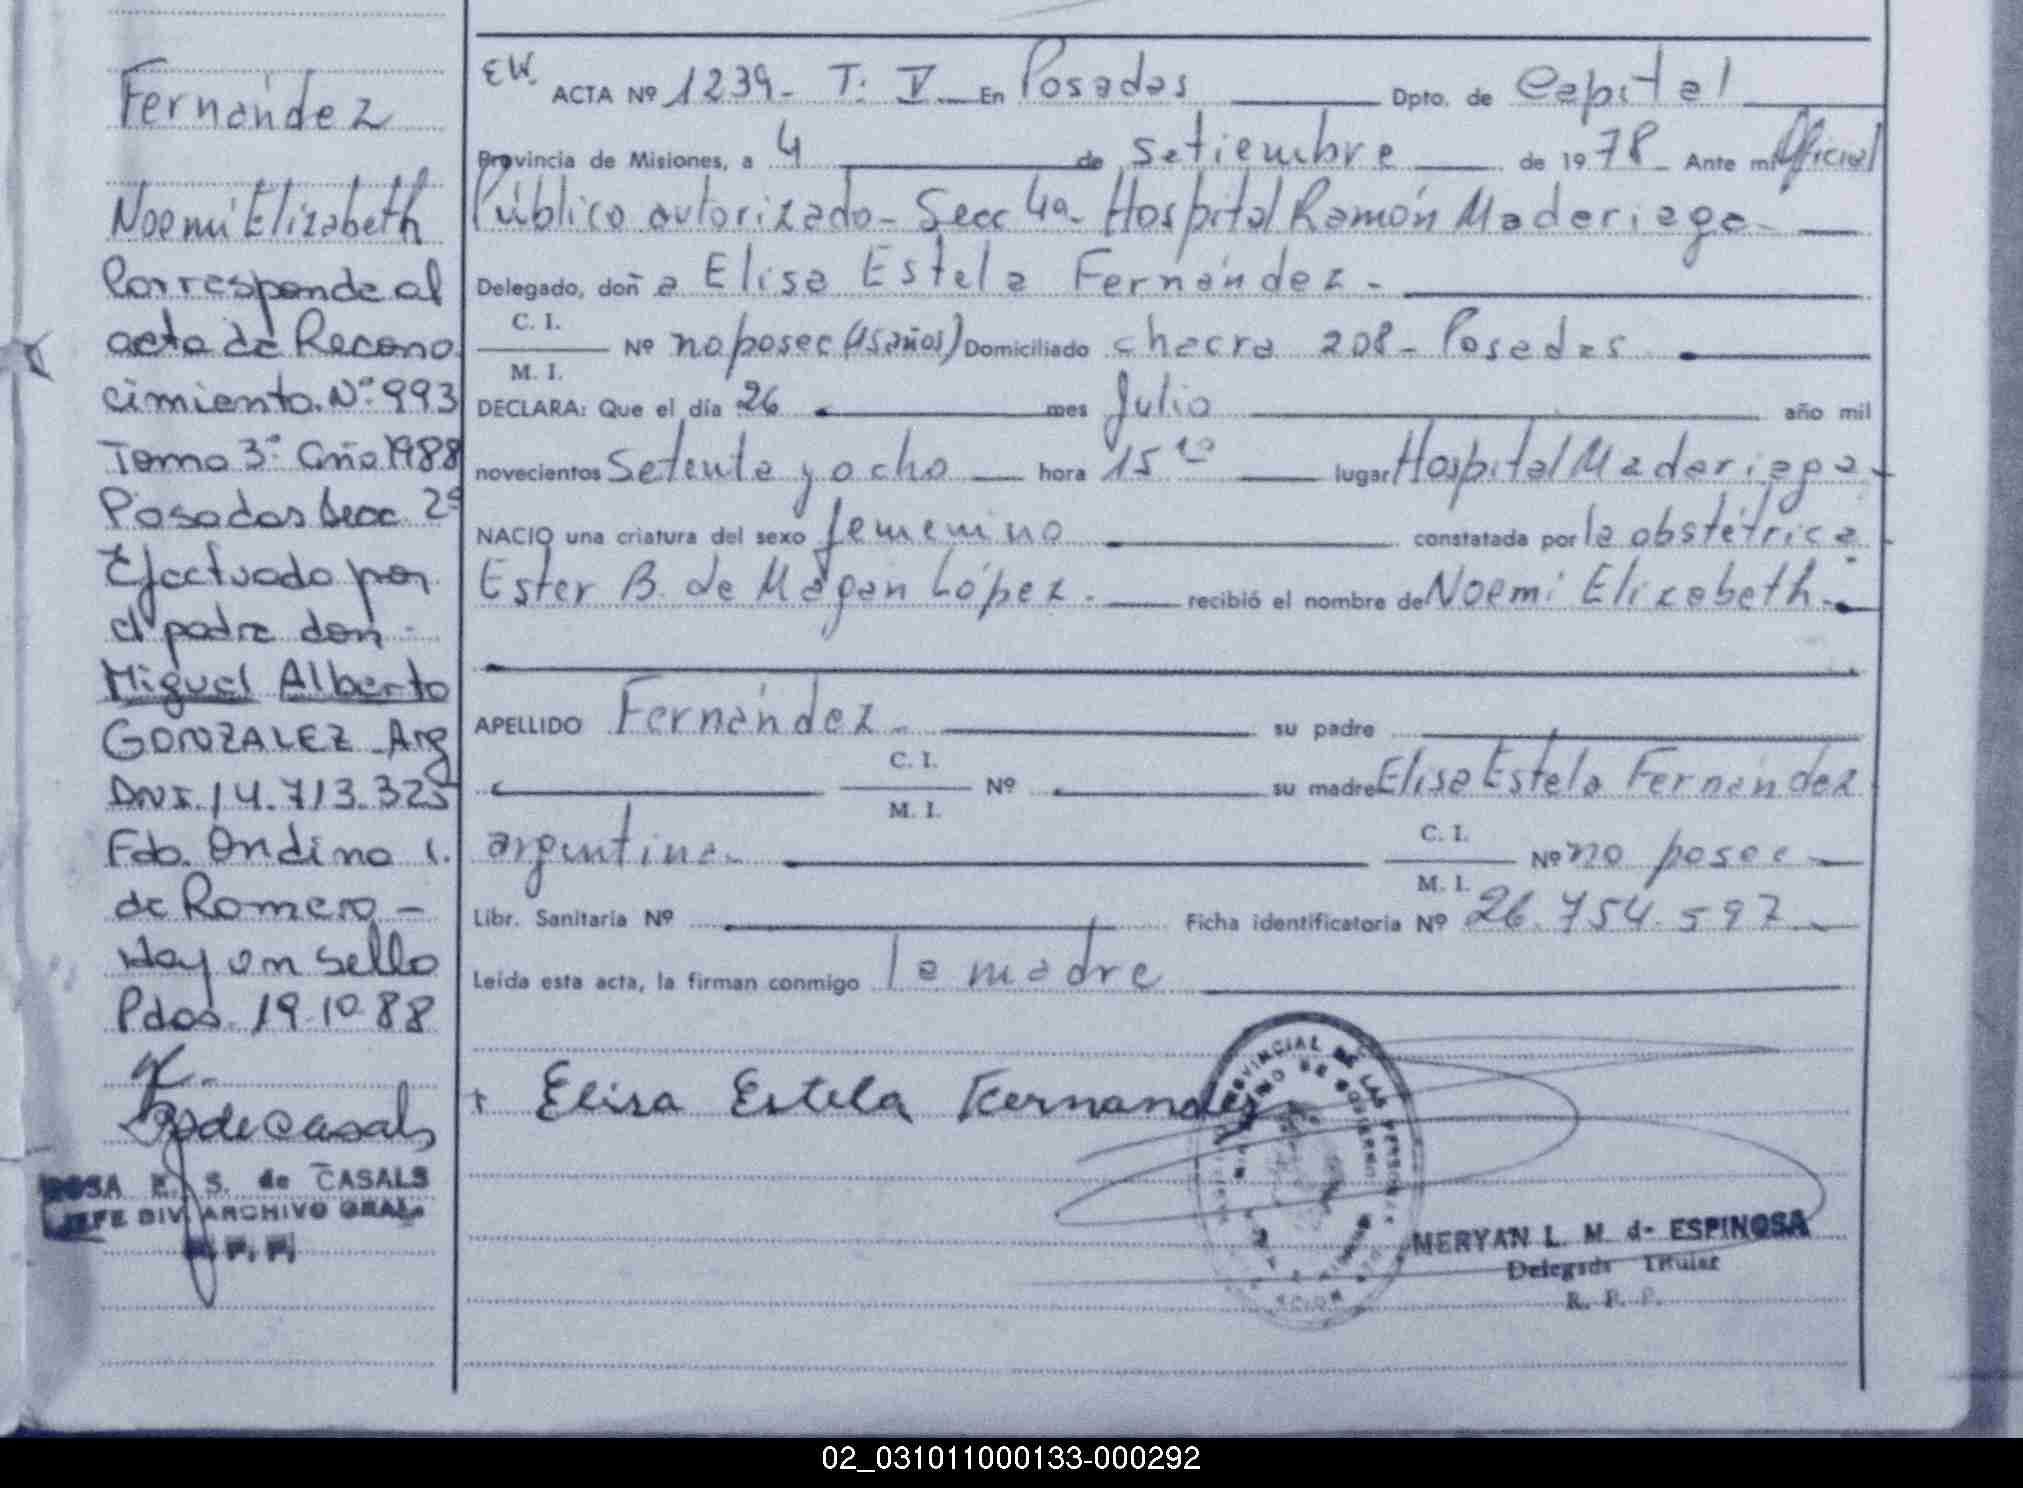 Fernández
Noemí Elizabeth
Corresponde al
acta de Recono
cimiento. Nº 993
Tomo 3º año 1988
Posadas Secc. 2ª
Efectuado por
el padre don
Miguel Alberto
GONZALEZ Arg
DNI. 14.713.325
Fdo. Ondina I.
de Romero -
Hay un sello
Pdas. 19.10.88
de Casals
ROSA E. S. de CASALS
JEFE DIV. ARCHIVO GRAL.
R. P. P.
EW. ACTA Nº 1239- T: V. En Posadas Dpto. de Capital
Provincia de Misiones, a 4 de setiembre de 1978 Ante mi Oficial
Público autorizado - Secc 4a- Hospital Ramón Madariaga -
Delegado, doña Elisa Estela Fernández -
C. I.
Nº no posee (15 años) Domiciliado chacra 208 - Posadas
M. I.
DECLARA: Que el día 26 mes Julio año mil
novecientos Setenta y ocho hora 15 10 lugar Hospital Madariaga -
NACIO una criatura del sexo femenino constatada por la obstétrica
Ester B. de Magan López. recibió el nombre de Noemí Elizabeth.
APELLIDO Fernández - su padre
C. I.
Nº su madre Elisa Estela Fernández
M. I.
argentina. C. I.
Nº no posee
M. I.
Libr. Sanitaria Nº Ficha identificatoria Nº 26.754.597
Leída esta acta, la firman conmigo la madre
Elisa Estela Fernandez
PROVINCIAL DE LAS PERSONAS
MERYAN L. M. de ESPINOSA
Delegada Titular
R. P. P.
02_031011000133-000292